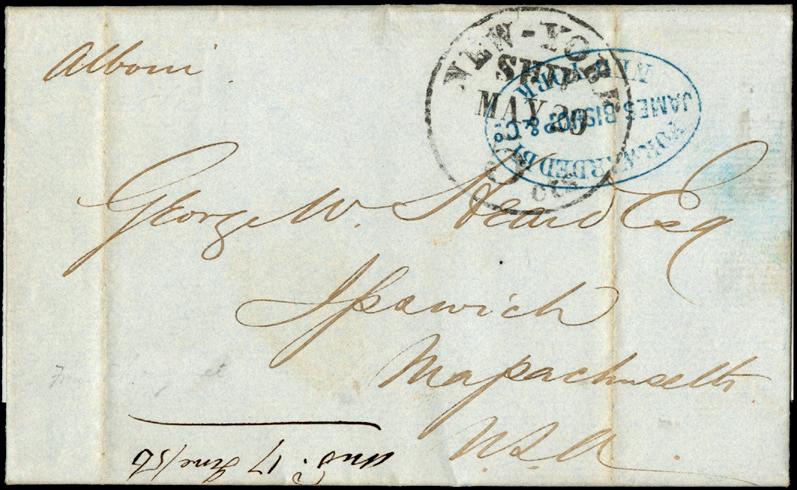 Alboni
NEW-YORK
SHIP
MAY 20
8 cts
FORWARDED BY
JAMES BISHOP & Co.
NEW YORK
George W. Heard Esq
Ipswich
Massachusetts
U.S.A.
Ansd. 17 June/56